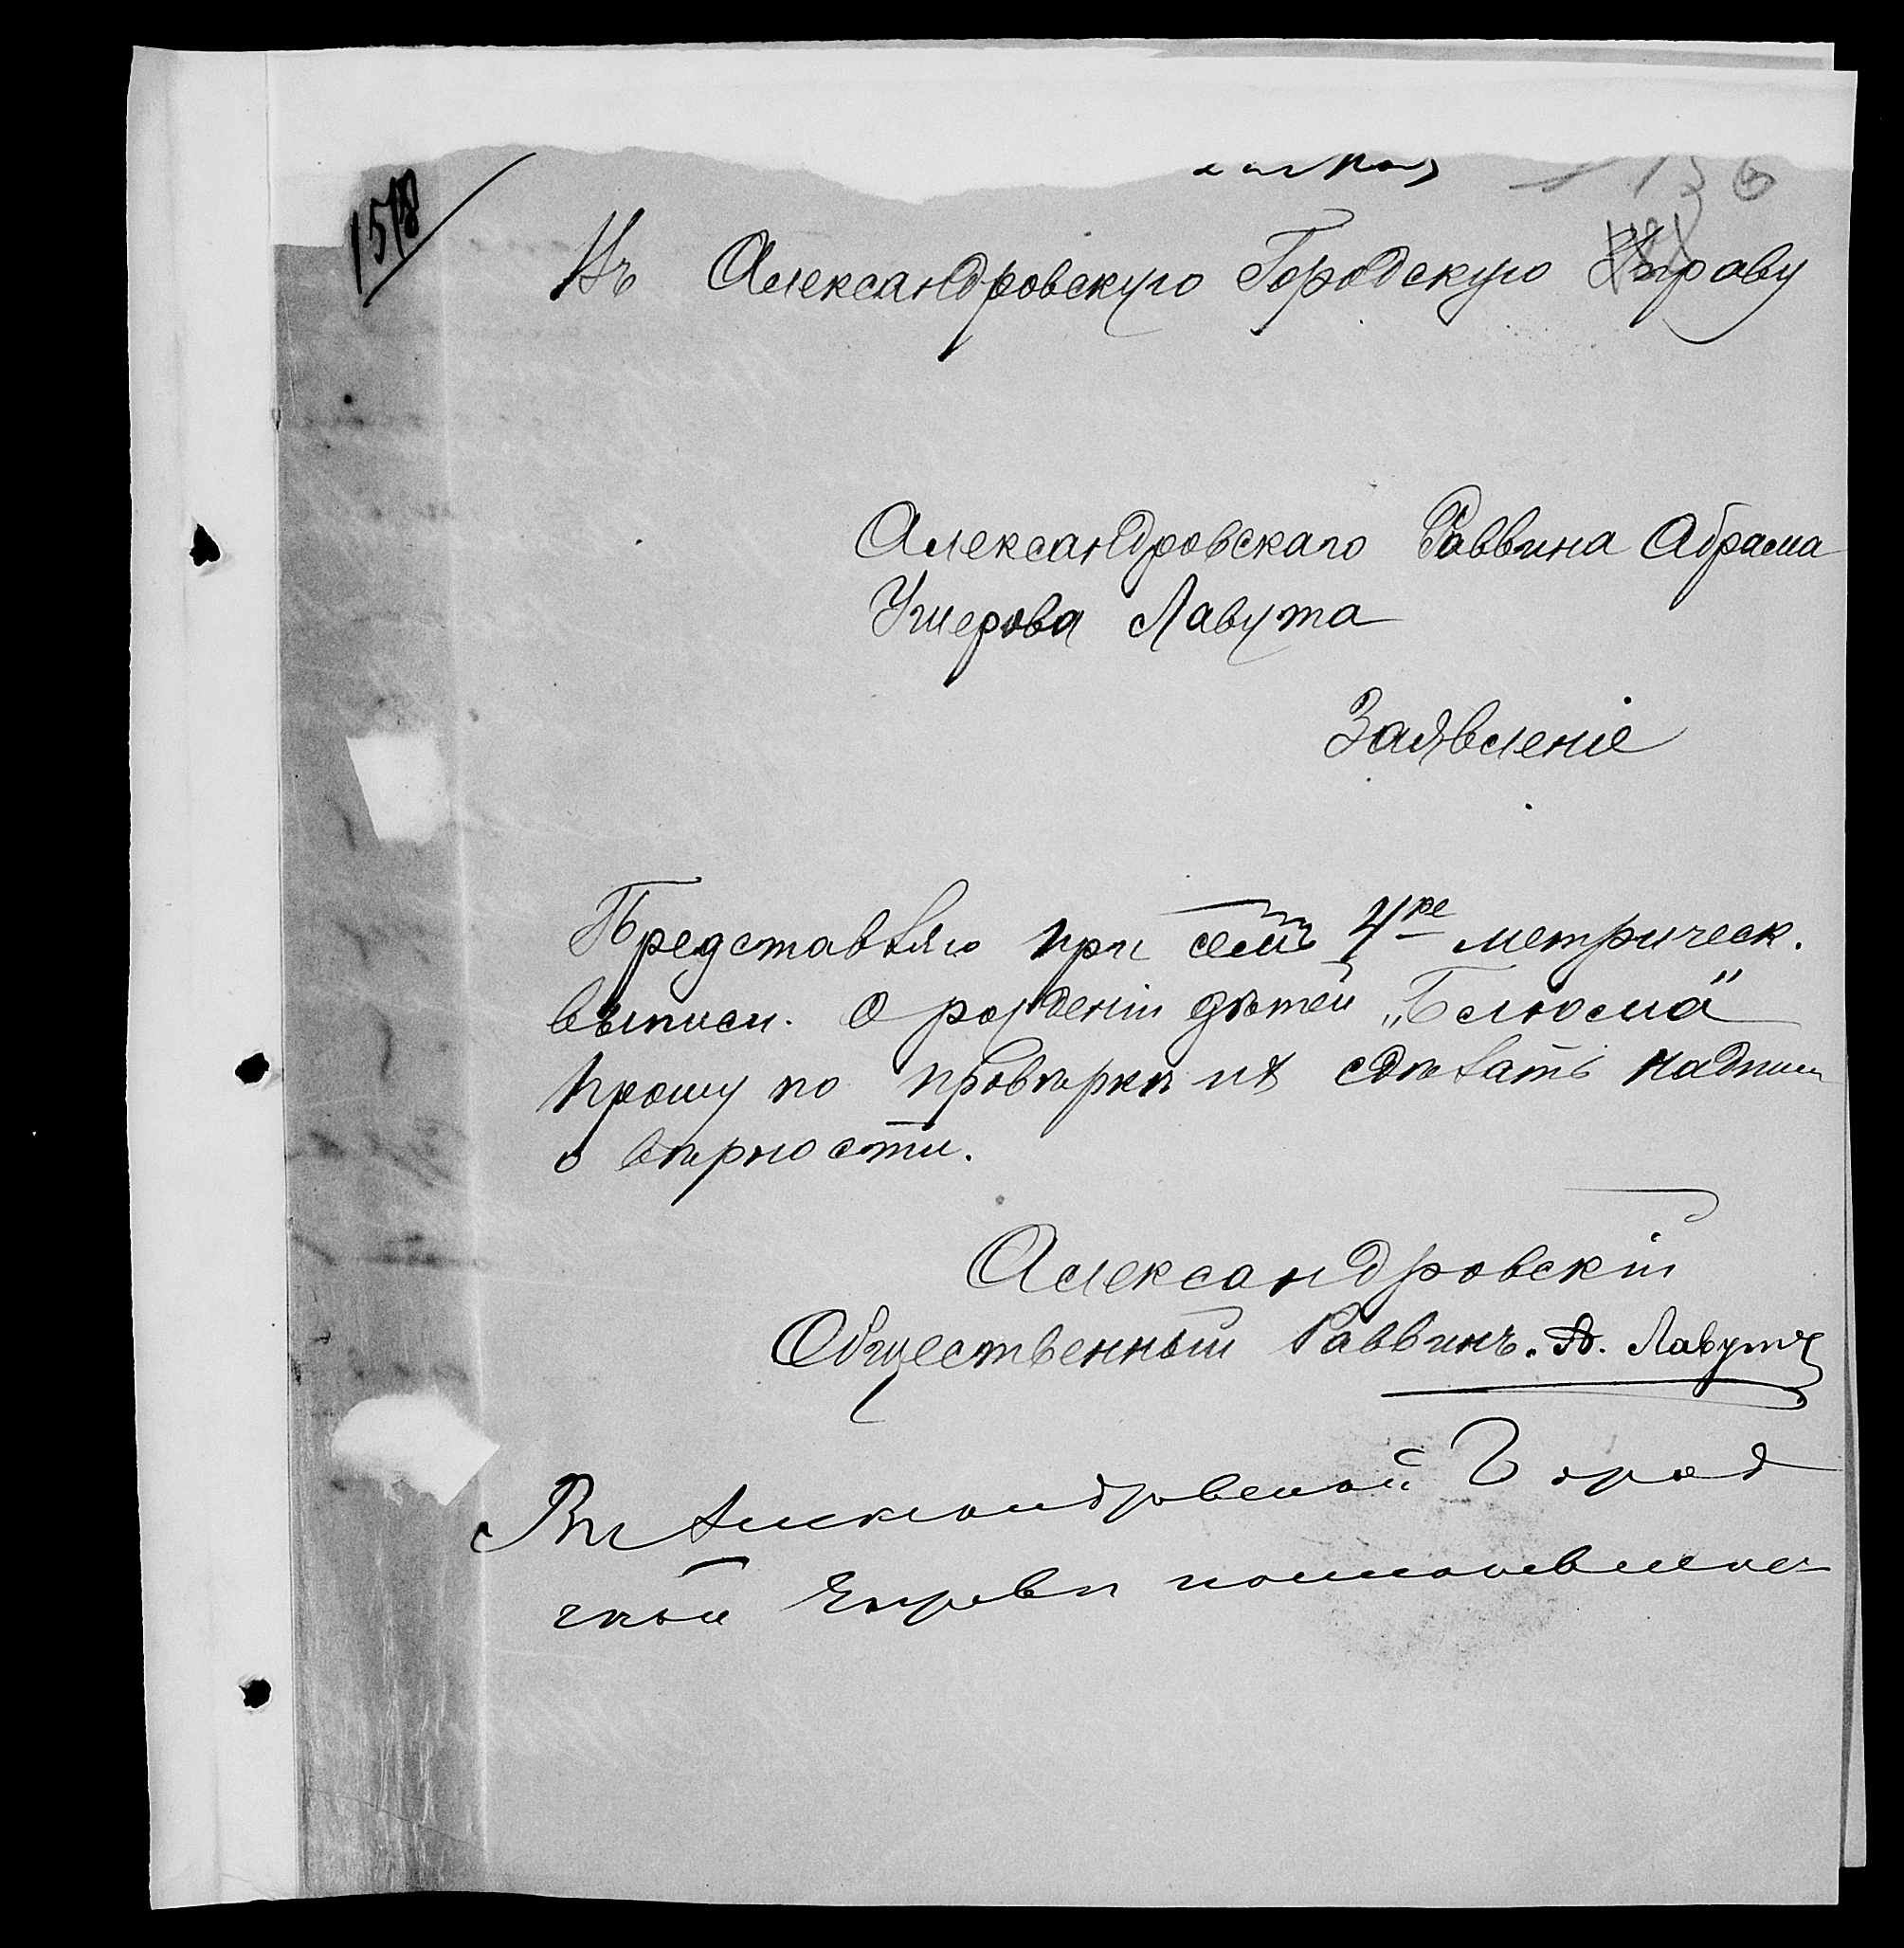 1518
136
Въ Александровскую Городскую Управу
Александровскаго Раввина Абрама
Ушерова Лавута
Заявленіе
Представляю при семъ 4ре метрическ.
выписи. о рожденіи дѣтей „Блюма"
прошу по провѣркѣ ихъ сдѣлать надпись
о вѣрности.
Александровскій
Общественный Раввинъ. А. Лавутъ
Въ Александровской Город
ской Управѣ